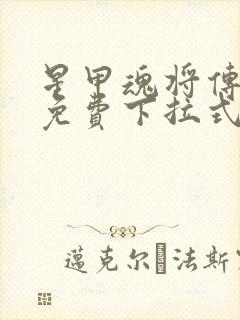 星甲魂将傳
免費下拉式
邁克尔 法斯